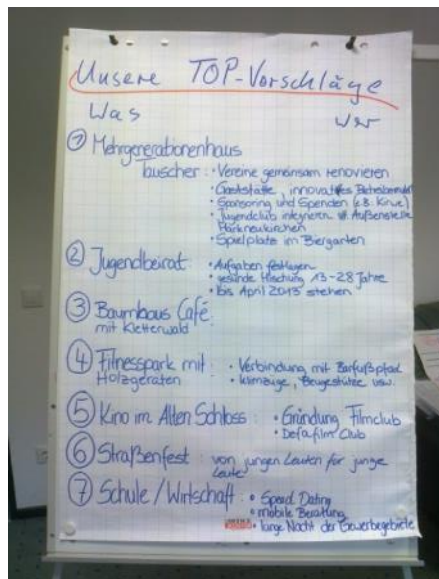 Unsere TOP-Vorschläge
Was wer
① Mehrgenerationenhaus
Tauscher: • Vereine gemeinsam renovieren
• Gaststätte, innovatives
• Sponsoring und Spenden (z.B. Kirwe)
• Jugendclub integrieren Außenstelle
Markneukirchen
• Spielplatz im Biergarten
② Jugendbeirat: • Aufgaben festlegen
• gesunde Mischung 13-28 Jahre
• bis April 2013 stehen
③ Baumhaus Café
mit Kletterwald
④ Fitnesspark mit : • Verbindung mit Barfußpfad
Holzgeräten • Klimmzüge, Beugestütze usw.
⑤ Kino im Alten Schloss : • Gründung Filmclub
• Defafilm Club
⑥ Straßenfest : von jungen Leuten für junge
Leute
⑦ Schule/Wirtschaft : • Speed Dating
• mobile Beratung
• lange Nacht der Gewerbegebiete